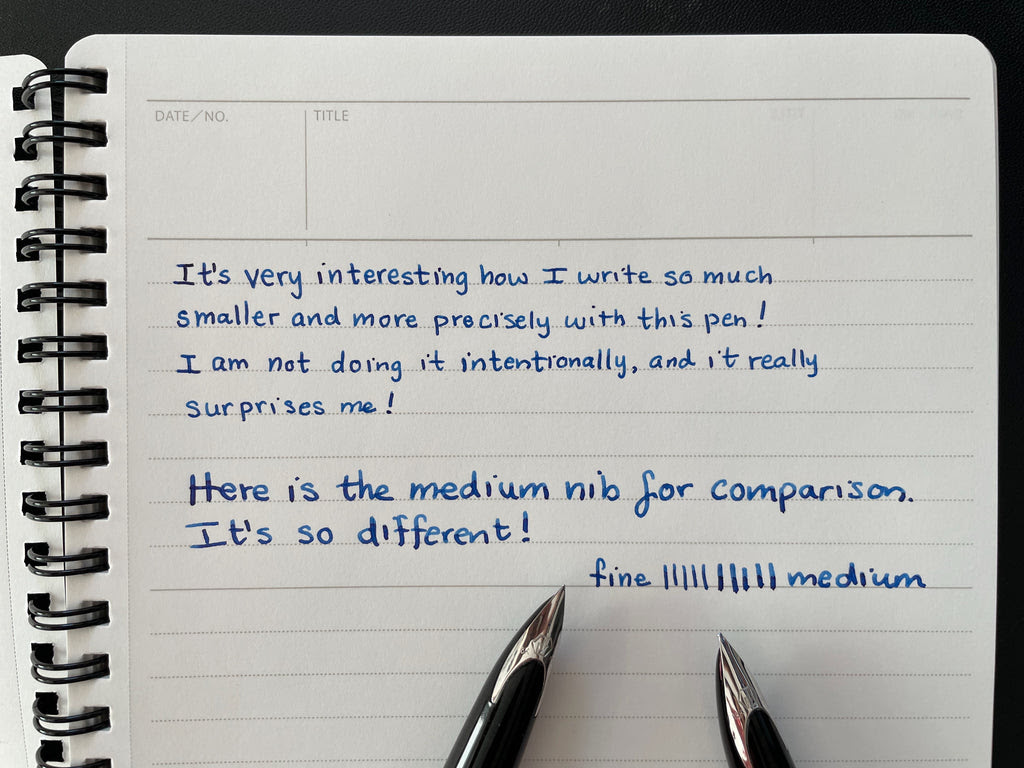 DATE/NO. TITLE
It's very interesting how I write so much
smaller and more precisely with this pen!
I am not doing it intentionally, and it really
surprises me!
Here is the medium nib for comparison.
It's so different!
fine |||||||||| medium